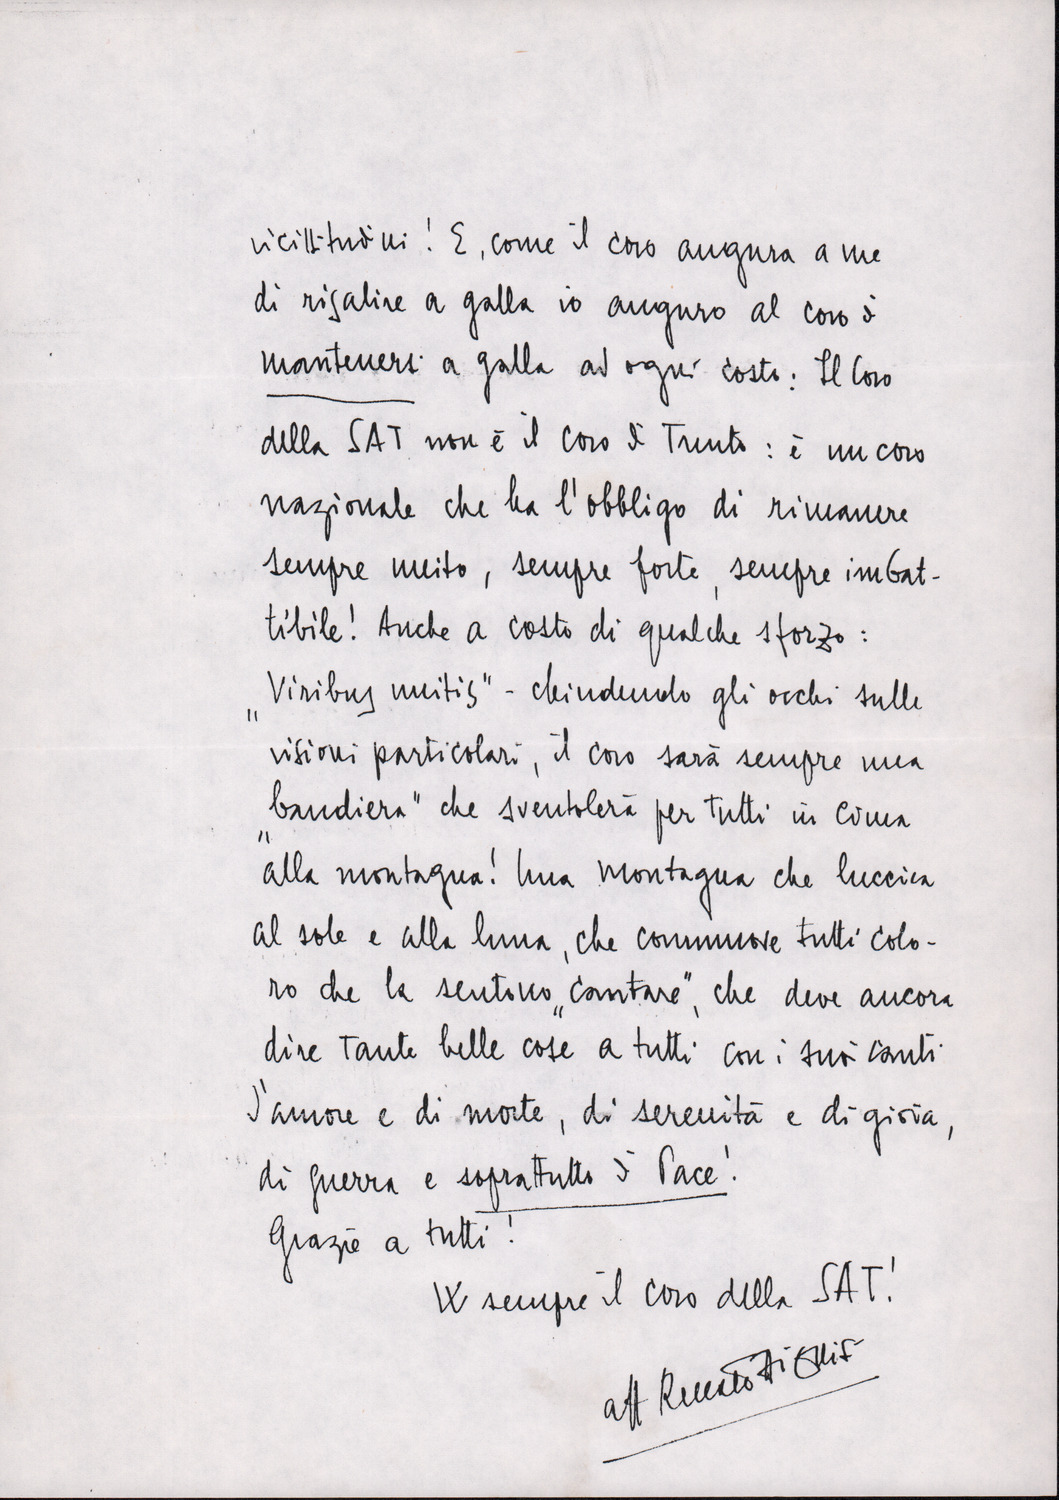 vicissitudini! E, come il coro augura a me
di risalire a galla io auguro al coro di
mantenersi a galla ad ogni costo: Il Coro
della SAT non è il Coro di Trento: è un coro
nazionale che ha l'obbligo di rimanere
sempre unito, sempre forte, sempre imbat-
tibile! Anche a costo di qualche sforzo:
„Viribus unitis" - chiudendo gli occhi sulle
visioni particolari, il coro sarà sempre una
„bandiera" che sventolerà per tutti in cima
alla montagna! Una montagna che luccica
al sole e alla luna, che commuove tutti colo-
ro che la sentono „cantare", che deve ancora
dire tante belle cose a tutti con i suoi canti
d'amore e di morte, di serenità e di gioia,
di guerra e soprattutto di Pace!
Grazie a tutti!
W sempre il coro della SAT!
aff Renato Dionisi